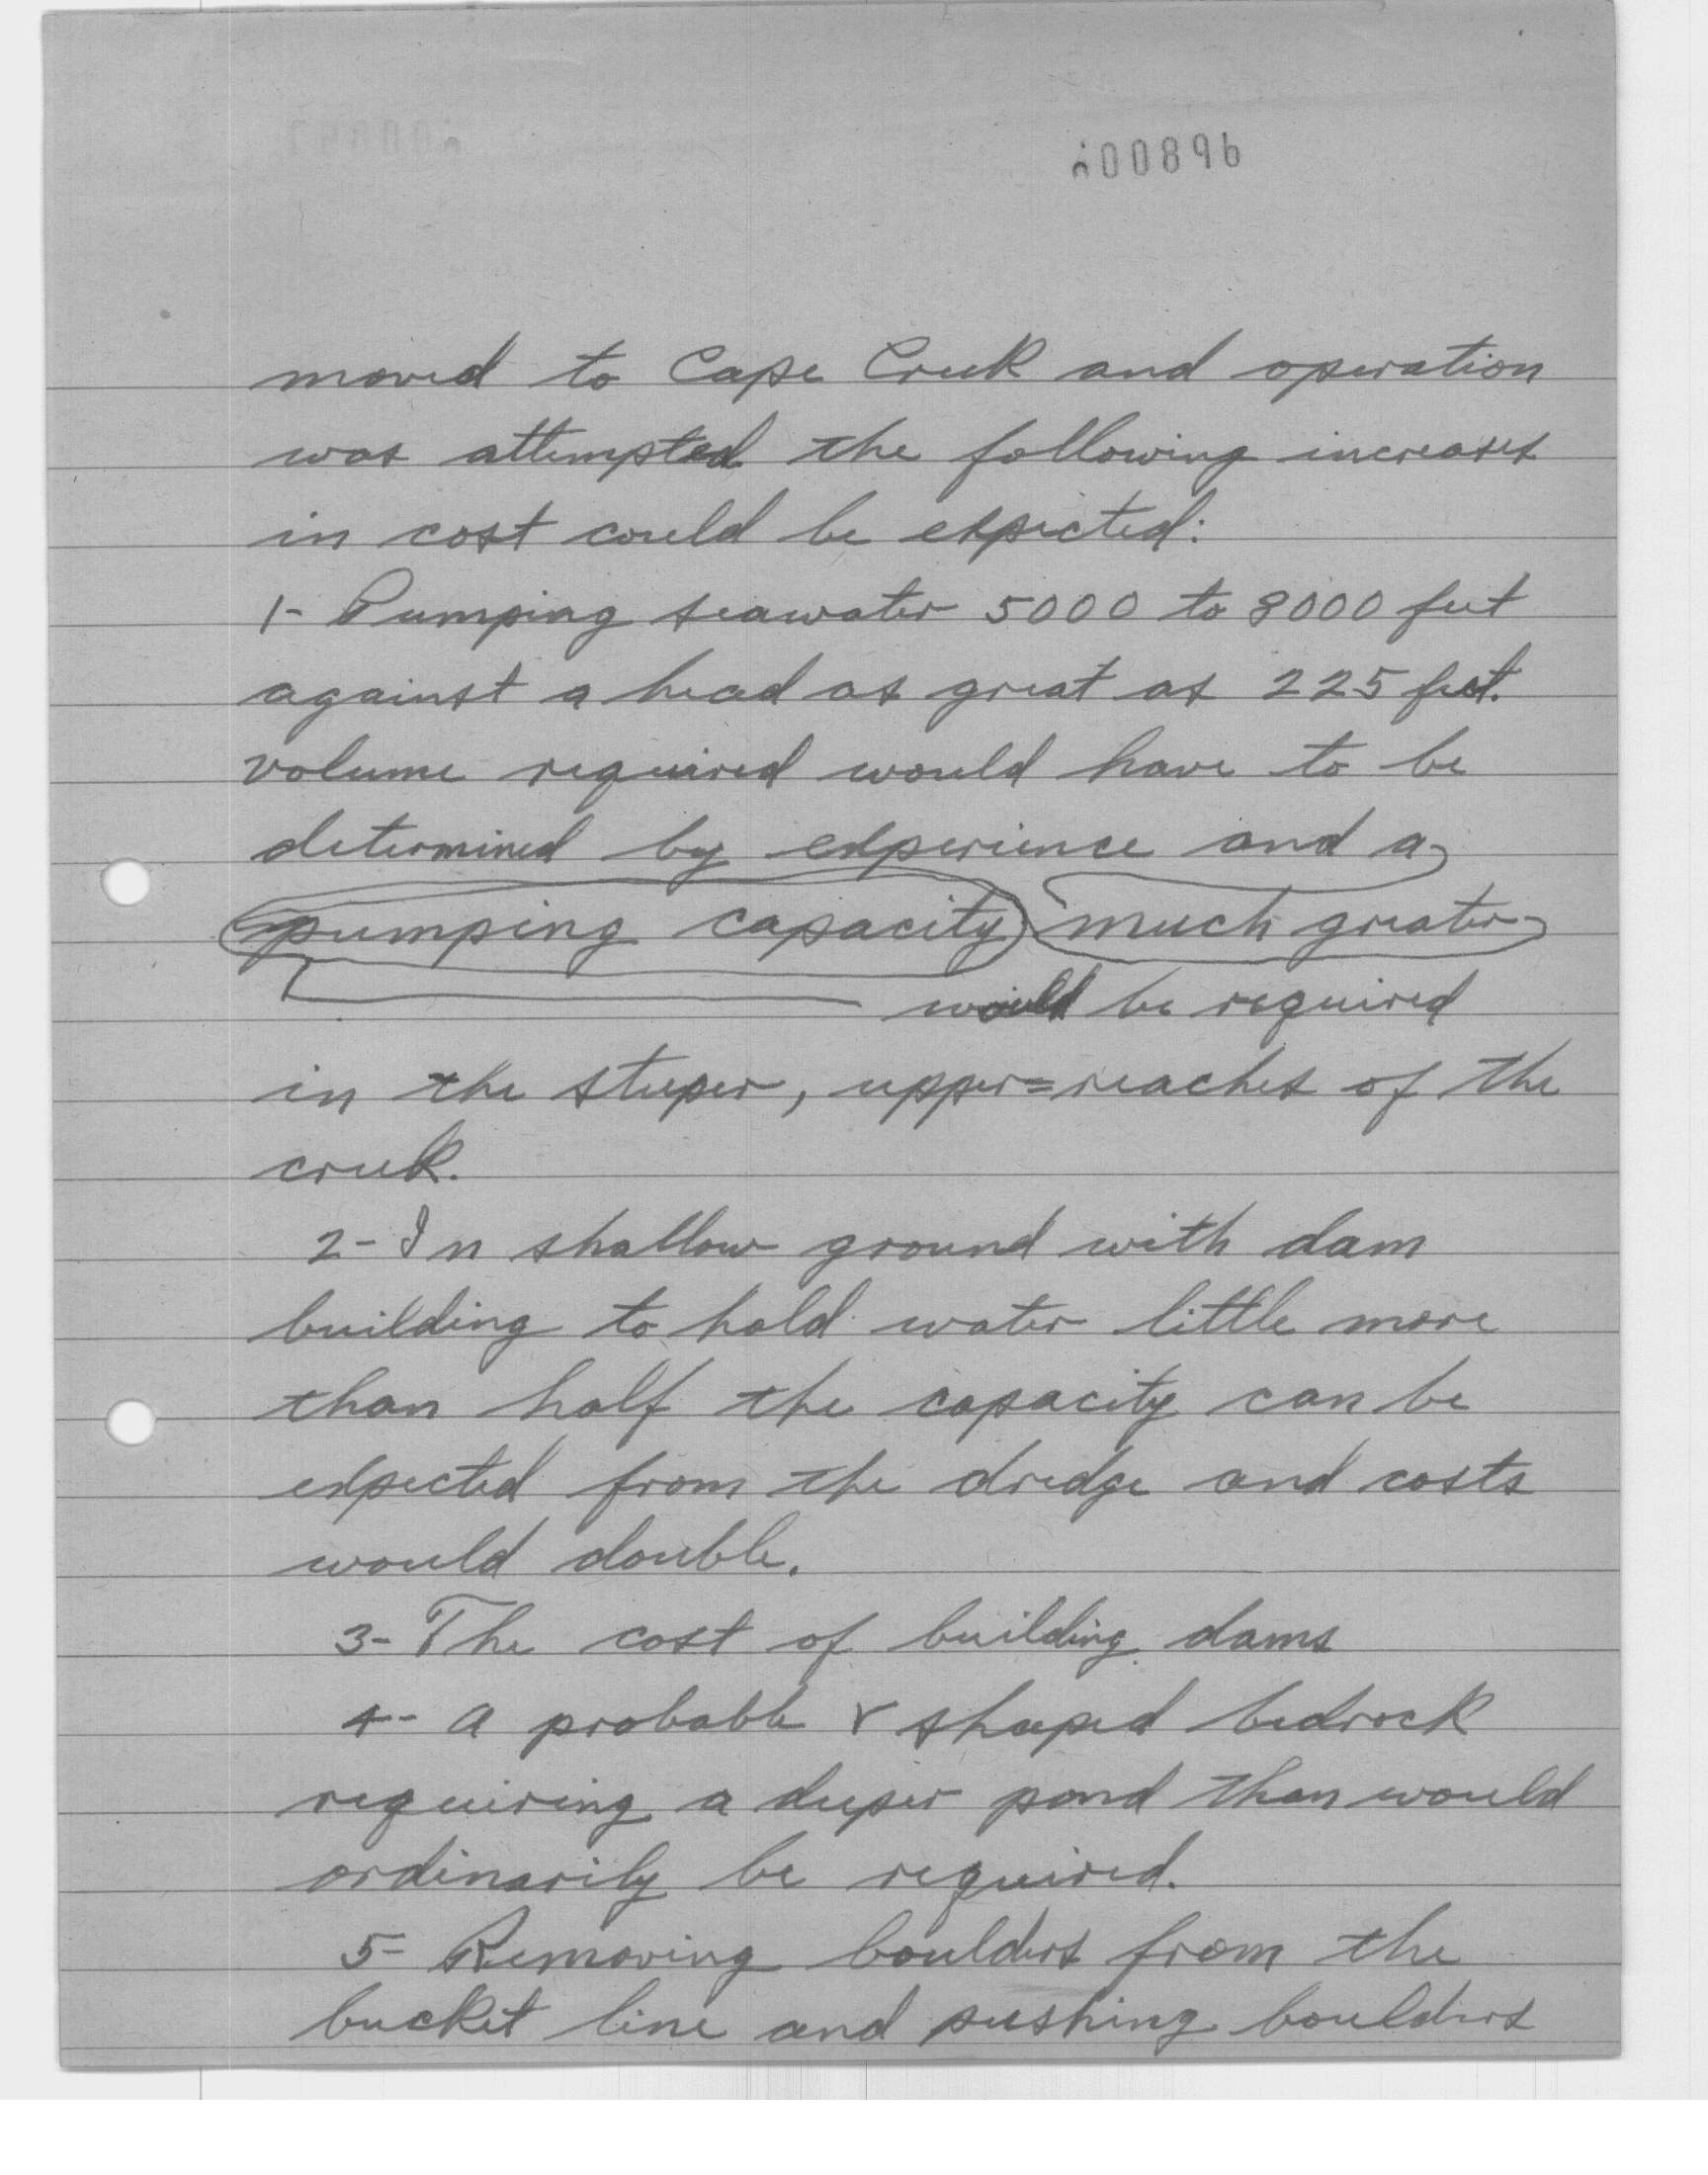 000896
moved to Cape Creek and operation
was attempted the following increases
in cost could be expected:
1- Pumping seawater 5000 to 8000 feet
against a head as great as 225 feet.
volume required would have to be
determined by experience and a
pumping capacity much greater
would be required
in the steeper, upper=reaches of the
creek.
2- In shallow ground with dam
building to hold water little more
than half the capacity can be
expected from the dredge and costs
would double.
3- The cost of building dams
4- A probable V shaped bedrock
requiring a deeper pond than would
ordinarily be required.
5- Removing boulders from the
bucket line and pushing boulders